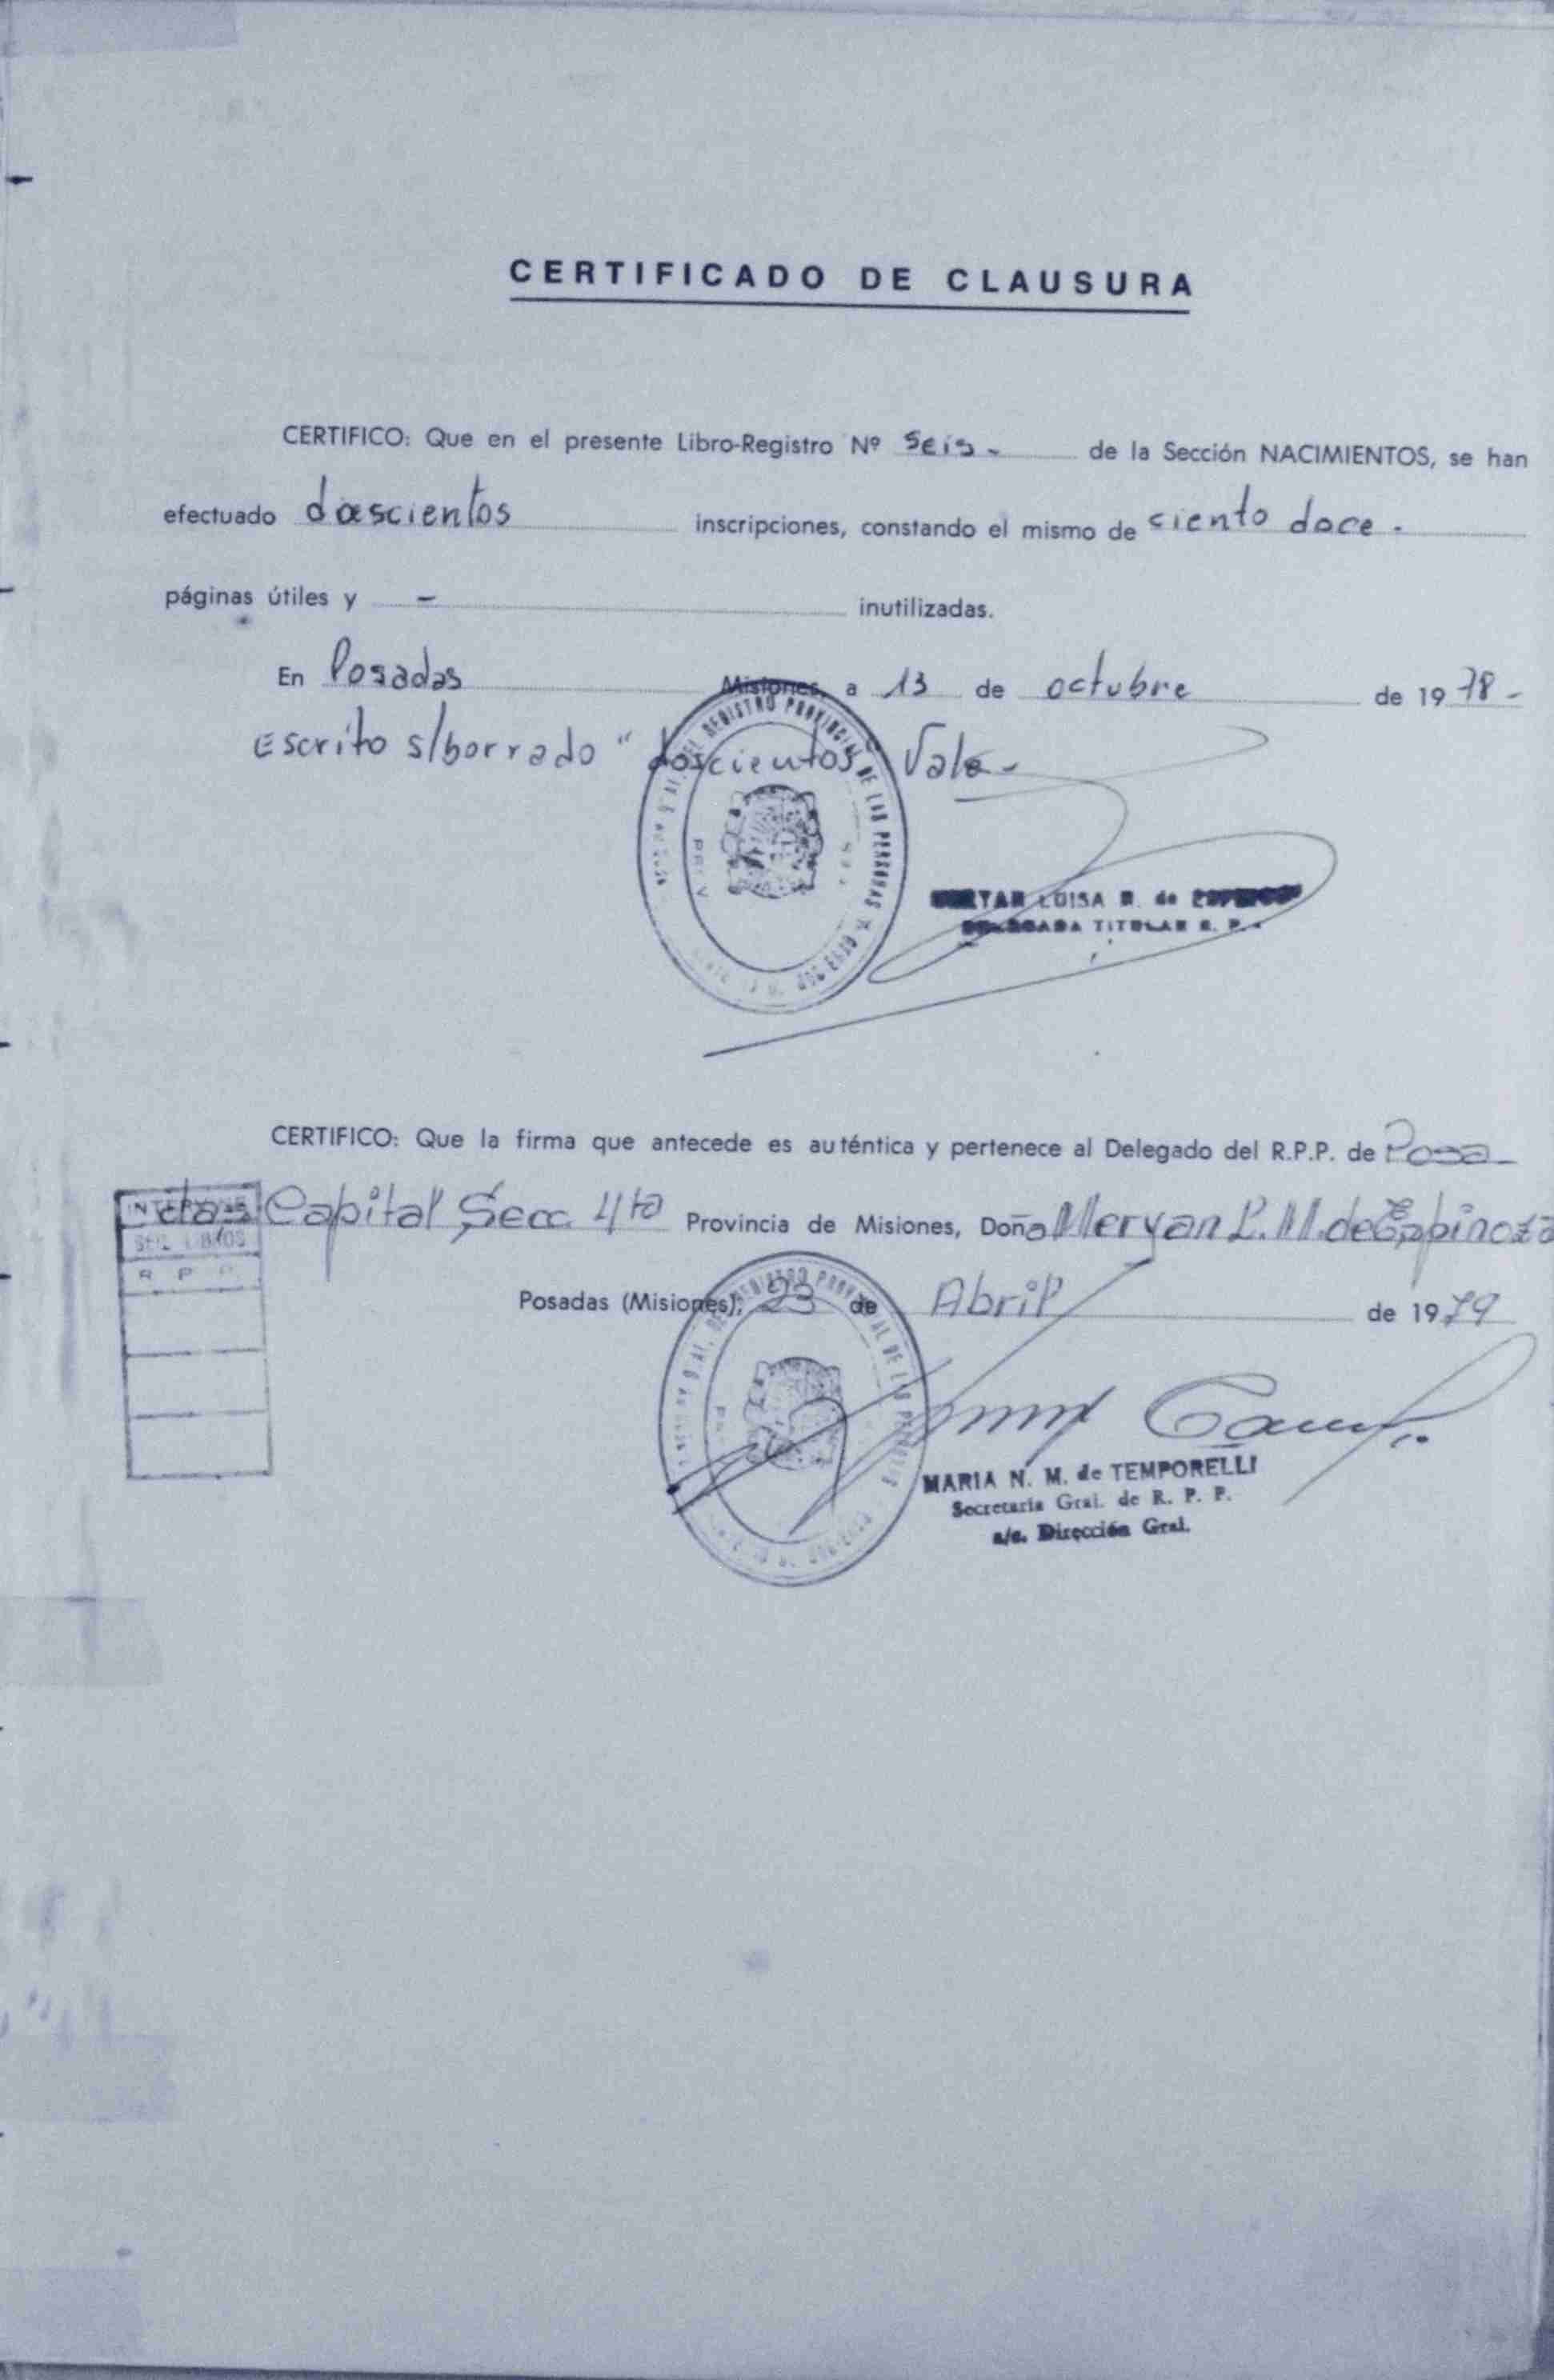 CERTIFICADO DE CLAUSURA
CERTIFICO: Que en el presente Libro-Registro Nº Seis - de la Sección NACIMIENTOS, se han
efectuado doscientos inscripciones, constando el mismo de ciento doce -
páginas útiles y - inutilizadas.
En Posadas Misiones, a 13 de octubre de 1978 -
Escrito s/borrado "doscientos" Vale -
LUISA M. de
TITULAR R. P.
CERTIFICO: Que la firma que antecede es auténtica y pertenece al Delegado del R.P.P. de Posa
das Capital Secc. 4ta Provincia de Misiones, Doña Meryan L. M. de Espinoza
Posadas (Misiones), 23 de Abril de 1979
R P P
MARIA N. M. de TEMPORELLI
Secretaria Gral. de R. P. P.
a/c. Dirección Gral.